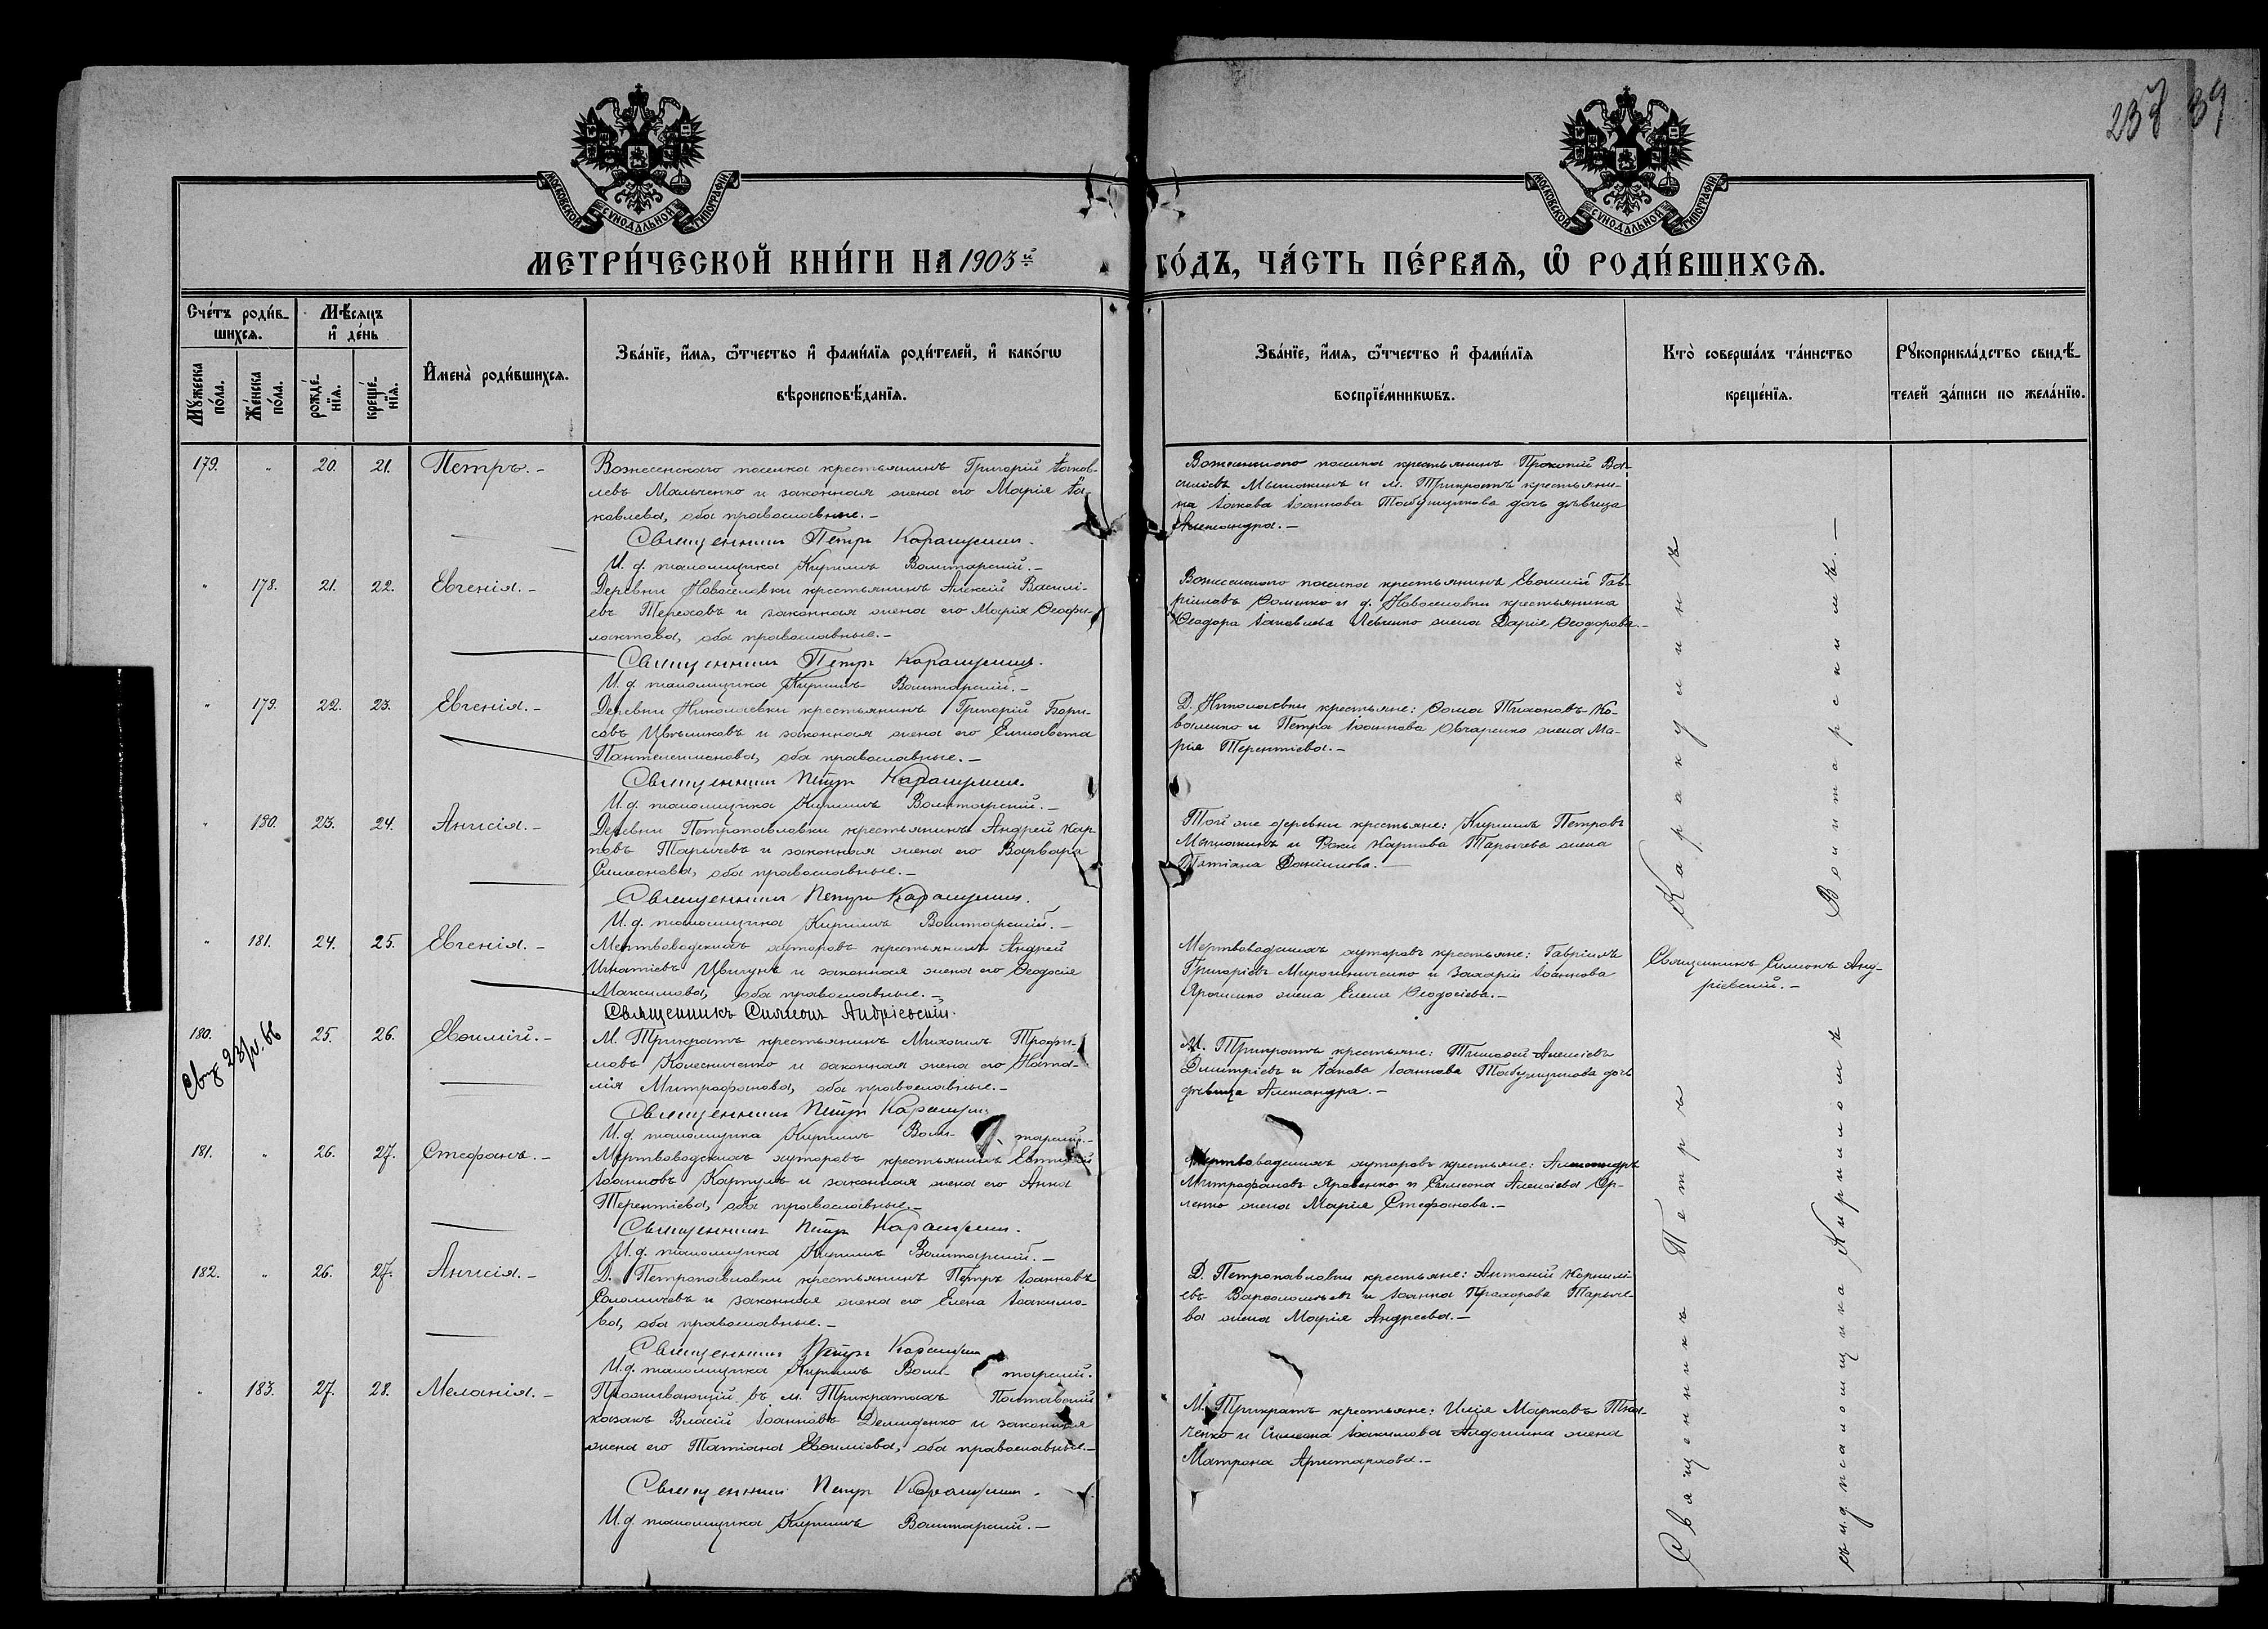 237 39
МОСКОВСКОЙ СУНОДАЛЬНОЙ ТИПОГРАФІИ
МОСКОВСКОЙ СУНОДАЛЬНОЙ ТИПОГРАФІИ
МЕТРИ́ЧЕСКОЙ КНИ́ГИ НА 1903й ГО́ДЪ, ЧА́СТЬ ПЕ́РВАЯ, Ѡ РОДИ́ВШИХСЯ.
Сче́тъ роди́в-
шихся.
Мѣ́сяцъ
и де́нь
Му́жеска по́ла.
Же́нска по́ла.
рожде́-
нія.
креще́-
нія.
Имена̀ роди́вшихся.
Зва́ніе, и́мя, ѻ́тчество и фами́лія роди́телей, и како́гѡ
вѣроисповѣ́данія.
Зва́ніе, и́мя, ѻ́тчество и фами́лія
воспріе́мникѡвъ.
Кто̀ соверша́лъ та́инство
креще́нія.
Рукоприкла́дство свидѣ́-
телей за́писи по жела́нію.
179. " 20. 21. Петръ.-
Вознесенскаго поселка крестьянинъ Григорій Іаков-
левъ Мальченко и законная жена его Марія Іа-
ковлева, оба православные.-
Священникъ Петръ Каракушин.
И. д. псаломщика Кириллъ Воинтарскій.-
Вознесенскаго поселка крестьянинъ Прокопій Ва-
силіевъ и м. Трикратъ крестьяни-
на Іакова Іоаннова Табунщикова дочь дѣвица
Александра.-
" 178. 21. 22. Евгенія.-
Деревни Новоселовки крестьянинъ Алексій Василі-
евъ Тереховъ и законная жена его Марія Ѳеофи-
лактова, оба православные.-
Священникъ Петръ Каракушин.
И. д. псаломщика Кириллъ Воинтарскій.-
Вознесенскаго поселка крестьянинъ Евѳимій Гав-
ріиловъ Ѳоменко и д. Новоселовки крестьянина
Ѳеодора Іаковлева Левченко жена Дарія Ѳеодорова.-
" 179. 22. 23. Евгенія.-
Деревни Николаевки крестьянинъ Григорій Бори-
совъ Цвѣликовъ и законная жена его Елисавета
Пантелеимонова, оба православные.-
Священникъ Петръ Каракушин.
И. д. псаломщика Кириллъ Воинтарскій.-
Д. Николаевки крестьяне: Ѳома Тихоновъ Ко-
валенко и Петра Іоаннова Овчаренко жена Ма-
рія Терентіева.-
" 180. 23. 24. Анисія.-
Деревни Петропавловки крестьянинъ Андрей Кар-
повъ Тарычевъ и законная жена его Варвара
Симеонова, оба православные.-
Священникъ Петръ Каракушин.
И. д. псаломщика Кириллъ Воинтарскій.-
Той же деревни крестьяне: Кириллъ Петровъ
и Карпова Тарычева жена
Татіана Даніилова.-
" 181. 24. 25. Евгенія.-
Мертвоводскихъ хуторовъ крестьянинъ Андрей
Игнатіевъ Цвигунъ и законная жена его Ѳеодосія
Максимова, оба православные.-
Священникъ Симеонъ Андріевскій.
Мертвоводскихъ хуторовъ крестьяне: Гавріилъ
Григоріевъ Мирошниченко и Захаріи Іоаннова
Ярошенко жена Елена Ѳеодосіева.-
Священникъ Симеонъ Анд-
ріевскій.-
180. 25. 26. Евѳимій.-
М. Трикратъ крестьянинъ Михаилъ Трофи-
мовъ Колесниченко и законная жена его Ната-
лія Митрофанова, оба православные.-
Священникъ Петръ Каракушин
И. д. псаломщика Кириллъ Воин- тарскій.-
М. Трикратъ крестьяне: Тимоѳей Алексіевъ
Димитріевъ и Іакова Іоаннова Табунщикова дочь
дѣвица Александра.-
181. " 26. 27. Стефанъ.-
Мертвоводскихъ хуторовъ крестьянинъ
Іоанновъ и законная жена его Анна
Терентіева, оба православные.-
Священникъ Петръ Каракушин.
И. д. псаломщика Кириллъ Воинтарскій.-
Мертвоводскихъ хуторовъ крестьяне: Александръ
Митрофановъ Яровенко и Симеона Алексіева Ор-
ленко жена Марія Стефанова.-
182. " 26. 27. Анисія.-
Д. Петропавловки крестьянинъ Петръ Іоанновъ
и законная жена его Елена Іоакимо-
ва, оба православные.-
Священникъ Петръ Каракушин
И. д. псаломщика Кириллъ Воин- тарскій.
Д. Петропавловки крестьяне: Антоній Корнилі-
евъ Варѳоломѣевъ и Іоанна Прохорова Тарыче-
ва жена Марія Андреева.-
" 183. 27. 28. Меланія.-
Проживающій въ м. Трикратахъ Полтавскій
казакъ Власій Іоанновъ Демиденко и законная
жена его Татіана Евѳиміева, оба православные.-
Священникъ Петръ Каракушин.
И. д. псаломщика Кириллъ Воинтарскій.-
М. Трикратъ крестьяне: Илія Марковъ Тка-
ченко и Симеона Іоакимова Алдошина жена
Матрона Аристархова.-
Священникъ Петръ Каракушинъ
съ и. д. псаломщика Кирилломъ Воинтарскимъ.-